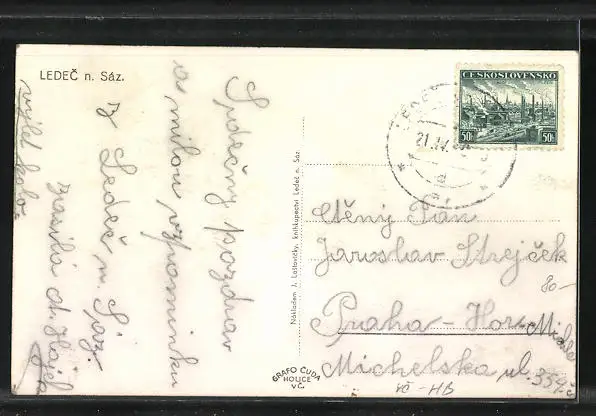 LEDEČ n. Sáz.
Srdečný pozdrav
a milou vzpomínku
Z Ledeč n. Sáz.
zasílá
výlet
Nákladem J. Laštovičky, knihkupectví Ledeč n. Sáz
GRAFO ČUDA
HOLICE
V Č.
ČESKOSLOVENSKO
50h
50h
LEDEČ
21.IV.
Ctěný Pan
Jaroslav Strejček
80-
Praha - Hor-Michle
Michelská ul. 339.
VČ-HB